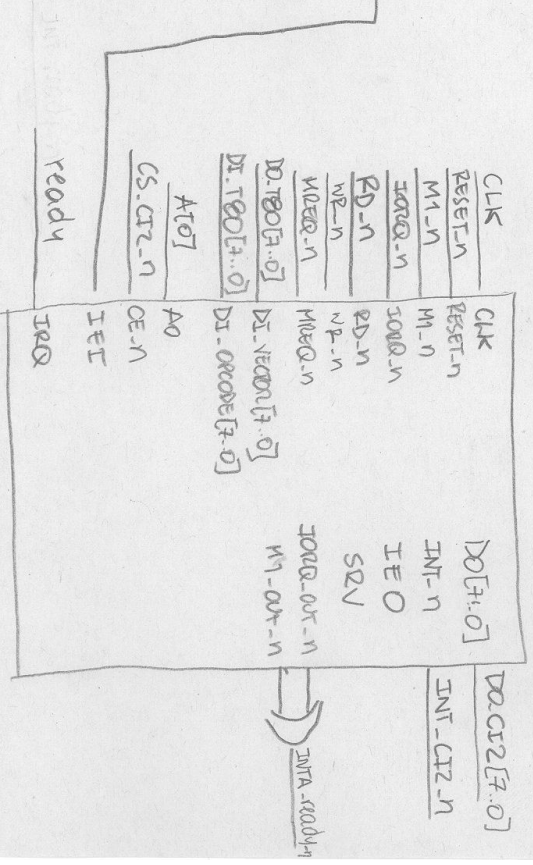 CLK
RESET_n
M1_n
IORQ_n
RD_n
WR_n
MREQ_n
DO_T80[7..0]
DI_T80[7..0]
A[0]
CS_CI2_n
ready
CLK
RESET_n
M1_n
IORQ_n
RD_n
WR_n
MREQ_n
DI_VECTOR[7..0]
DI_OPCODE[7..0]
A0
OE_n
IEI
IRQ
DO[7..0]
INT_n
IEO
SRV
IORQ_out_n
M1_out_n
DO_CI2[7..0]
INT_CI2_n
INTA_ready_n